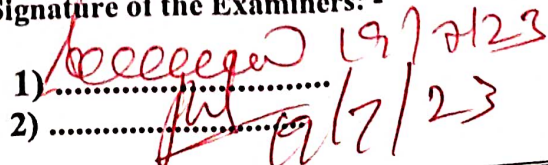 Signature of the Examiners: -
1) .............................. 19/7/23
2) .............................. 19/7/23